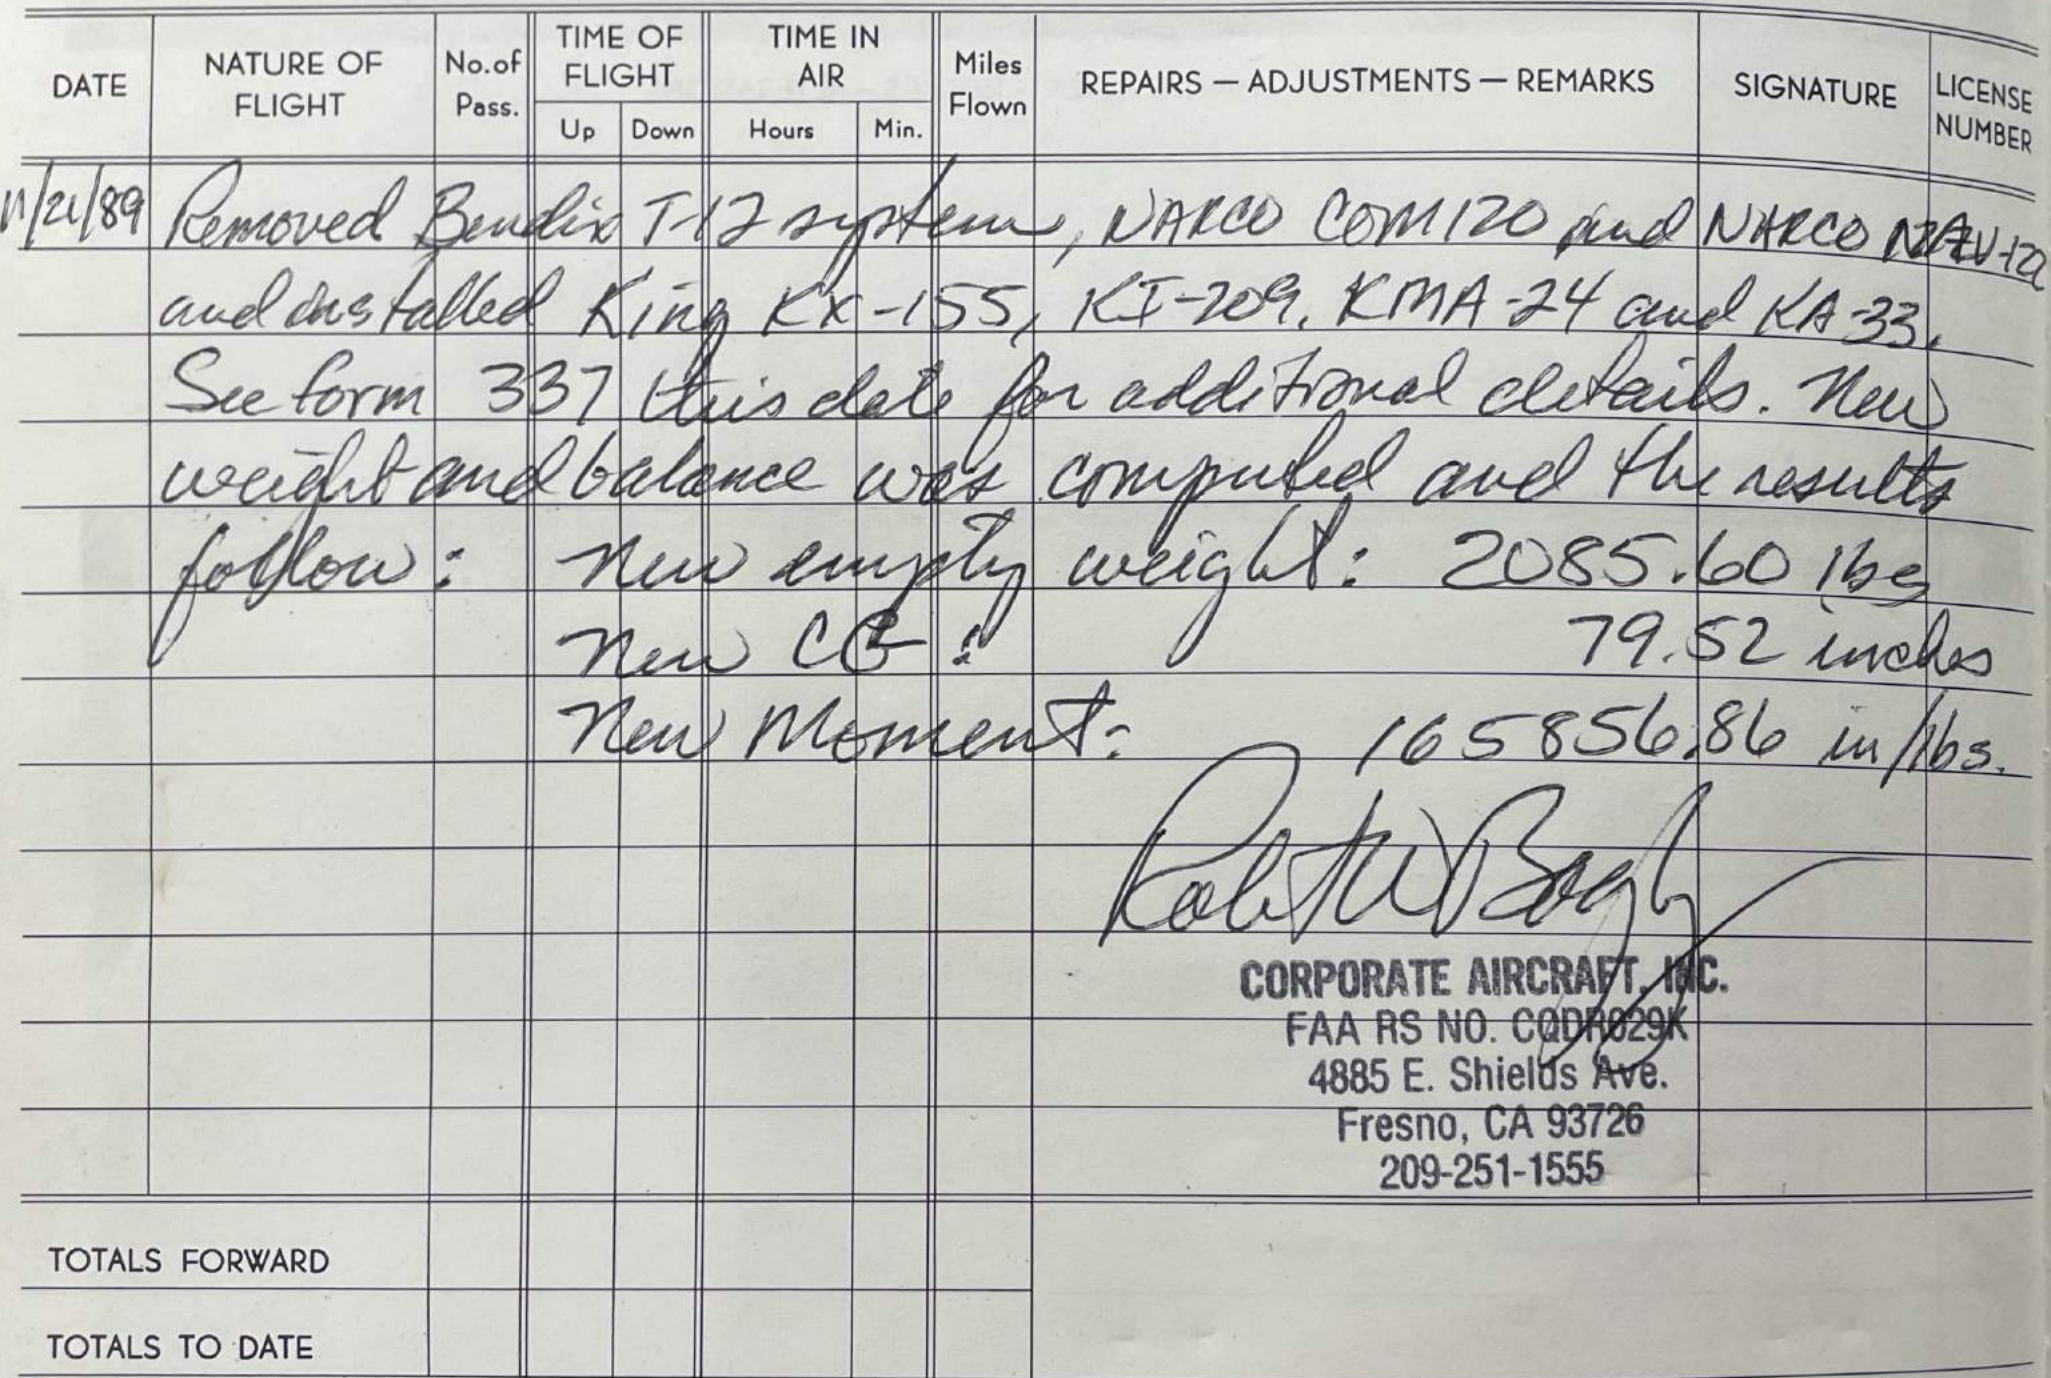 DATE NATURE OF FLIGHT No. of Pass. TIME OF FLIGHT Up Down TIME IN AIR Hours Min. Miles Flown REPAIRS — ADJUSTMENTS — REMARKS SIGNATURE LICENSE NUMBER
11/21/89 Removed Bendix T-12 system, NARCO COM 120 and NARCO NAV-122
and installed King KX-155, KI-209, KMA-24 and KA-33.
See form 337 this date for additional details. New
weight and balance was computed and the results
follow: New empty weight: 2085.60 lbs
New CG: 79.52 inches
New Moment: 165856.86 in/lbs.
CORPORATE AIRCRAFT, INC.
FAA RS NO. CQDR029K
4885 E. Shields Ave.
Fresno, CA 93726
209-251-1555
TOTALS FORWARD
TOTALS TO DATE